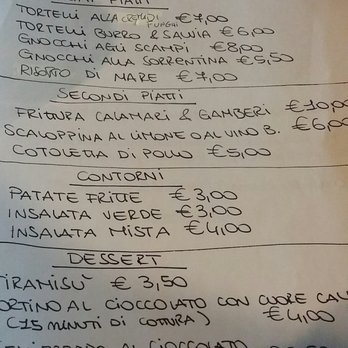 PIATTI
TORTELLI ALLA FUNGHI €7,00
TORTELLI BURRO & SALVIA €6,00
GNOCCHI AGLI SCAMPI €8,00
GNOCCHI ALLA SORRENTINA €5,50
RISOTTO DI MARE €7,00
SECONDI PIATTI
FRITTURA CALAMARI & GAMBERI €10,00
SCALOPPINA AL LIMONE O AL VINO B. €6,00
COTOLETTA DI POLLO €5,00
CONTORNI
PATATE FRITTE €3,00
INSALATA VERDE €3,00
INSALATA MISTA €4,00
DESSERT
TIRAMISÙ €3,50
TORTINO AL CIOCCOLATO CON CUORE CAL
(15 MINUTI DI COTTURA) €4,00
AL CIOCCOLATO